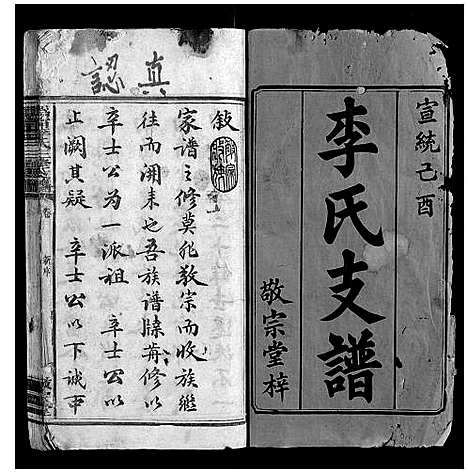 宣統己酉
李氏支譜
敬宗堂梓
真認
敍
家譜之修莫非敦宗而收族繼
往而開来也吾族譜牒苒修以
辛士公為一派祖　辛士公以
止闕其疑　辛士公以下誠巾
卷
新序